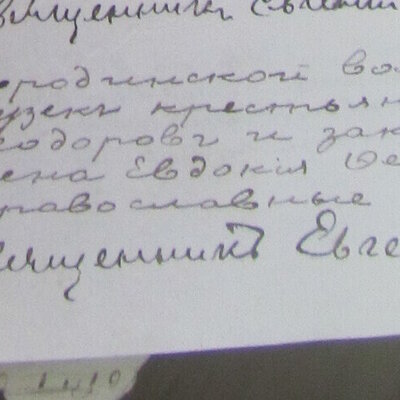 вященникъ Евгений
ородинской вол
узекъ крестьян
еодоровъ и зак
ена Евдокія Ѳе
равославные
вященникъ Евге